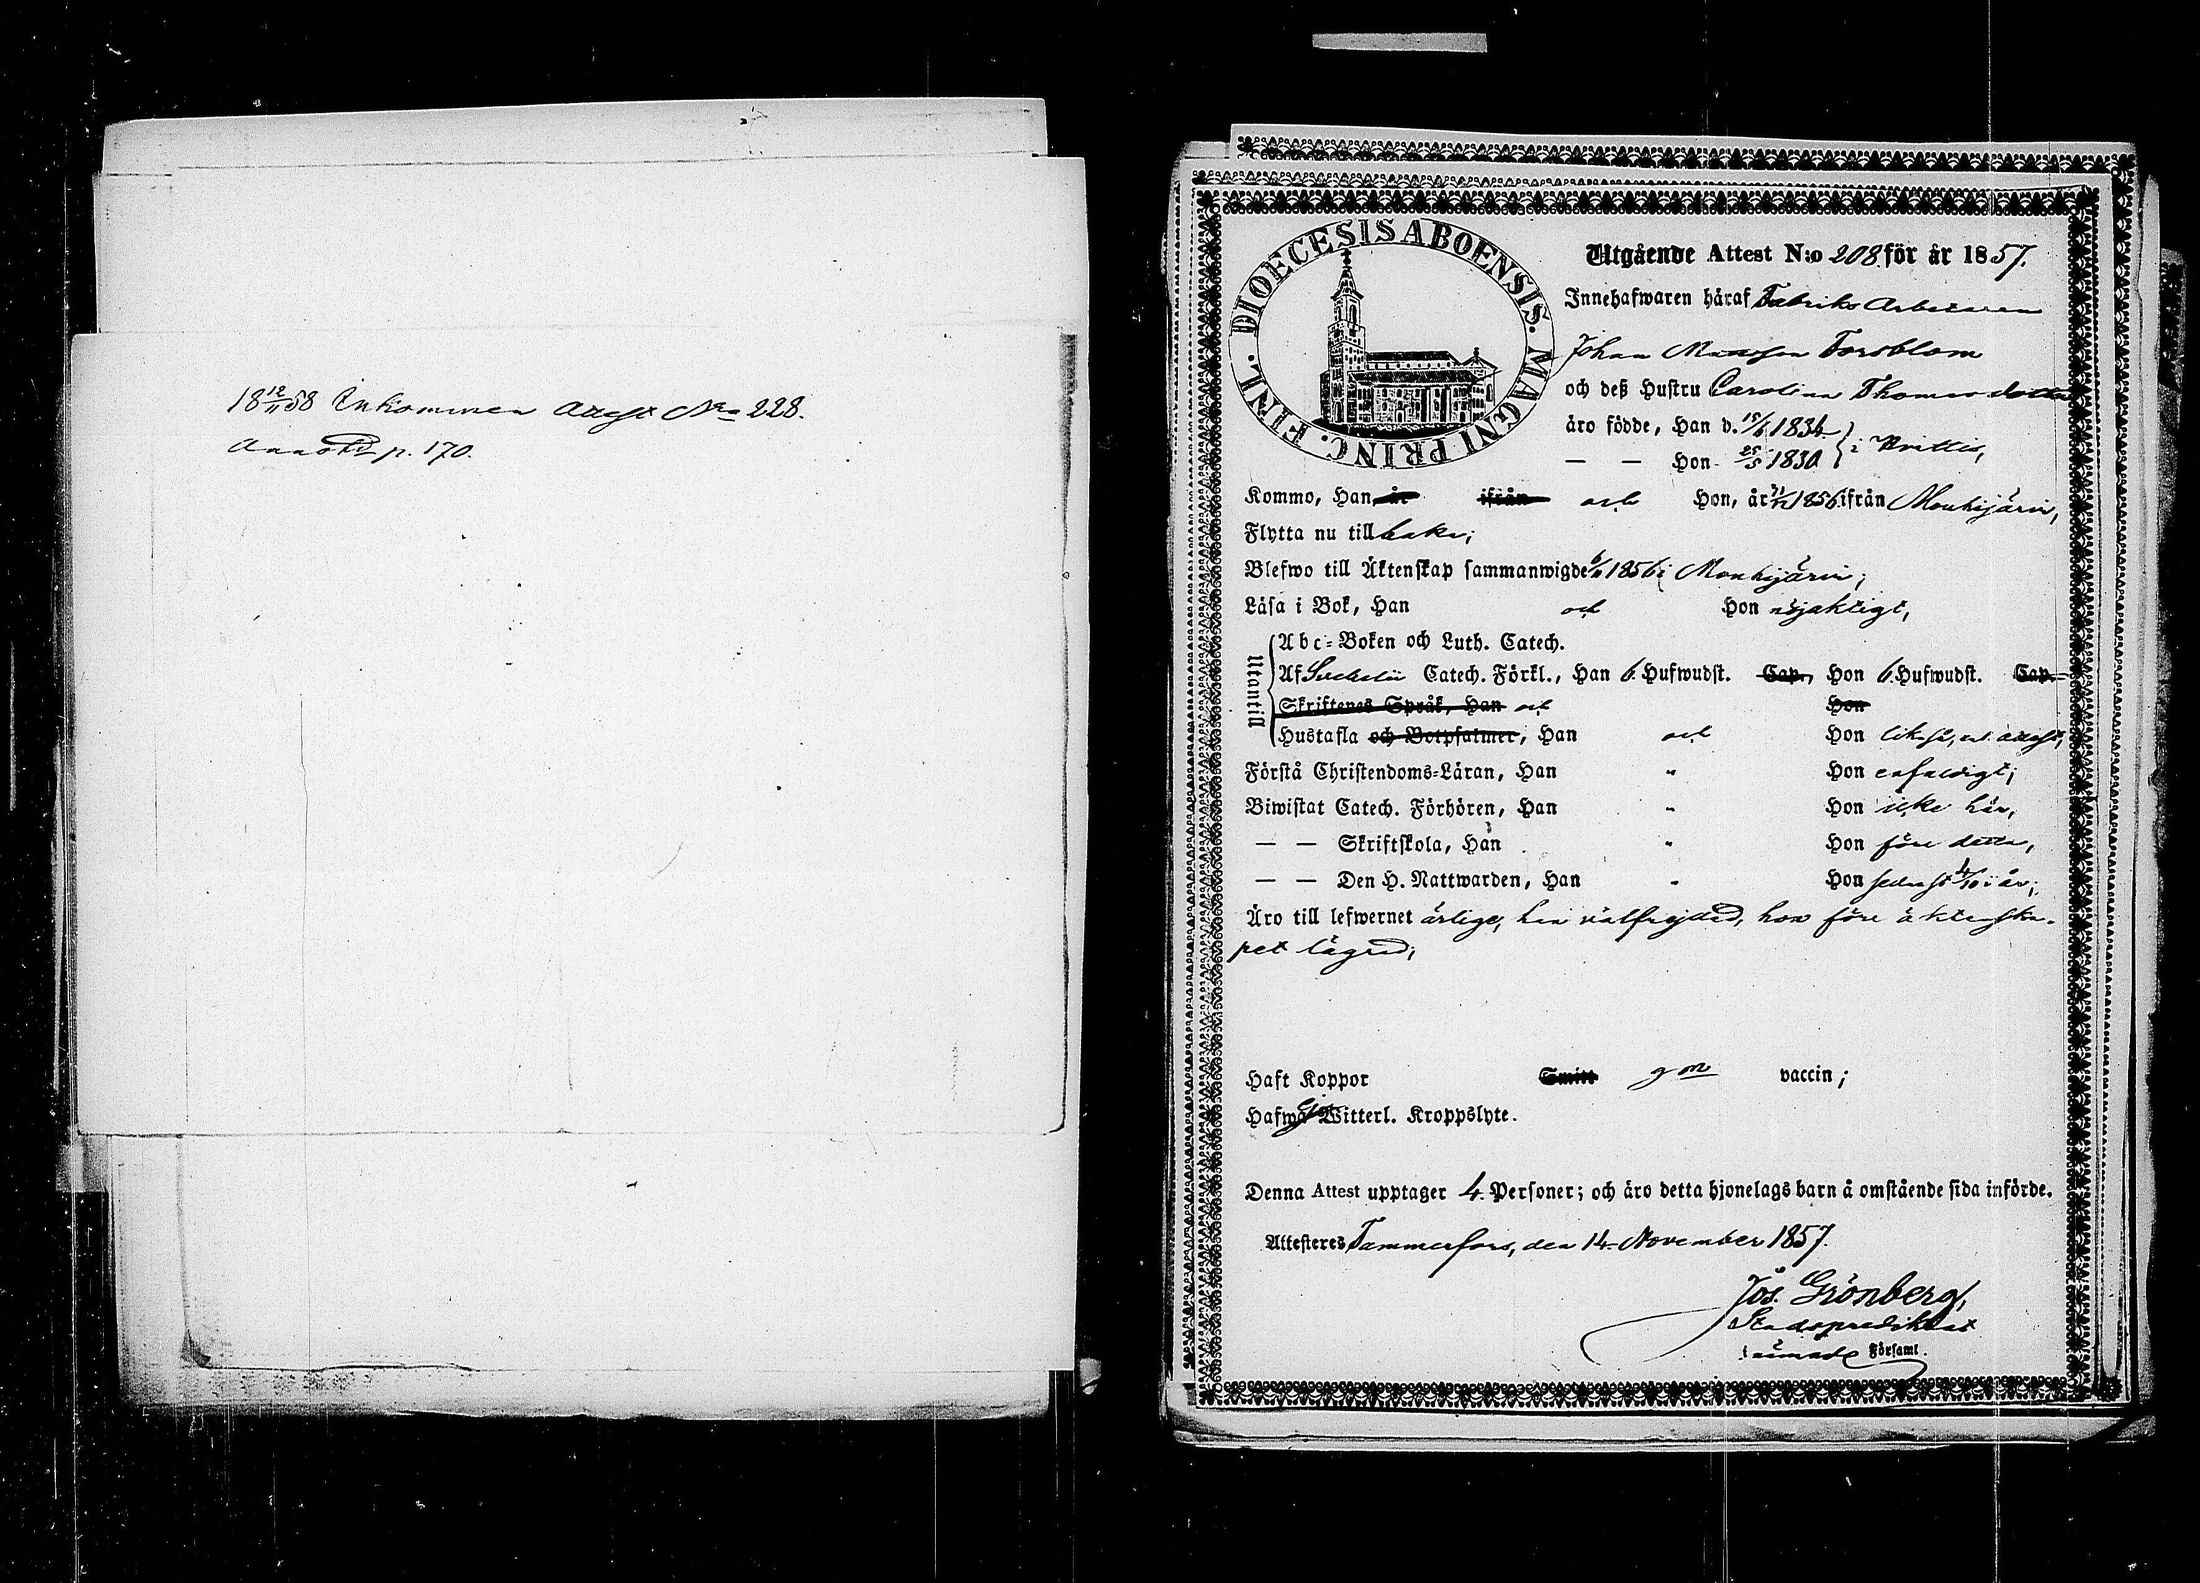 18 12/11 58 Inkommen Attest No 228.
Annoterd p. 170.
DIOECESIS ABOENSIS. MAGNI PRINC. FINL.
Utgående Attest N:o 208 för år 1857.
Innehafwaren häraf Fabriks Arbetaren
Johan Forsblom
och deß Hustru Carolina Thomasdotter
äro födde, Han d. 15/6 1834
— — Hon 25/5 1830 } i Hvittis,
Kommo, Han år ifrån och Hon, år 1856 ifrån Mouhijärvi,
Flytta nu tillbaka;
Blefwo till Äktenskap sammanwigde 1856 i Mouhijärvi;
Läsa i Bok, Han och Hon nöjaktigt,
Utantill
Abc-Boken och Luth. Catech.
Af Svebelii Catech. Förkl., Han 6 Hufwudst. Cap., Hon 6 Hufwudst. Cap.
Skriftenes Språk, Han och Hon
Hustafla och Botpsalmer, Han och Hon likaså, enl. attest,
Förstå Christendoms-Läran, Han " Hon enfaldigt;
Biwistat Catech. Förhören, Han " Hon icke här,
— — Skriftskola, Han " Hon före detta,
— — Den H. Nattwarden, Han " Hon sednast i år;
Äro till lefwernet ärlige, han välfrejdad, hon före äktenska-
pet lägrad;
Haft Koppor Smitt gm vaccin;
Hafwa Ej Witterl. Kroppslyte.
Denna Attest upptager 4 Personer; och äro detta hjonelags barn å omstående sida införde.
Attesteres Tammerfors, den 14 November 1857.
Jos. Grönberg,
Stadspredikant
i nämnde Församl.